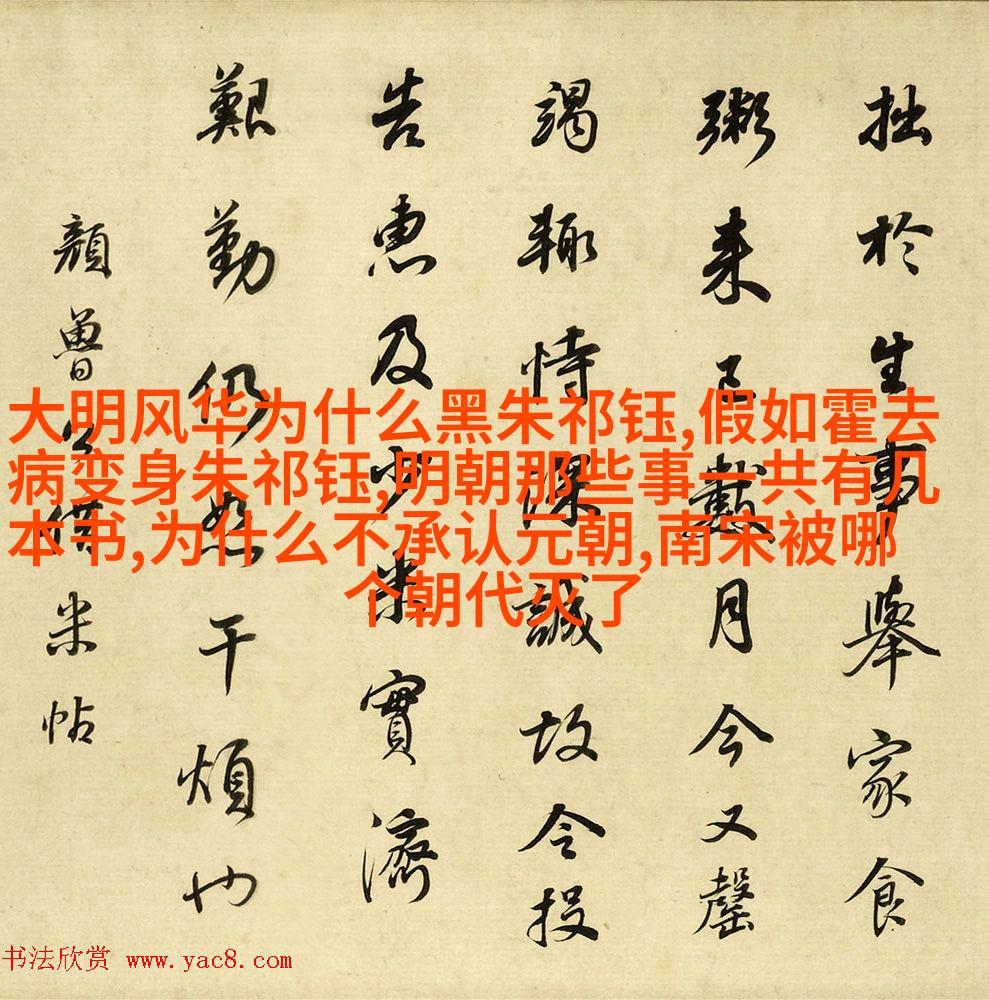 拙於生事舉家食
粥来已數月今又罄
竭輒恃深誠故令投
告惠及少米實濟
艱勤仍恕干煩也
顏魯公借米帖
大明风华为什么黑朱祁钰,假如霍去
病变身朱祁钰,明朝那些事一共有几
本书,为什么不承认元朝,南宋被哪
个朝代灭了
书法欣赏 www.yac8.com